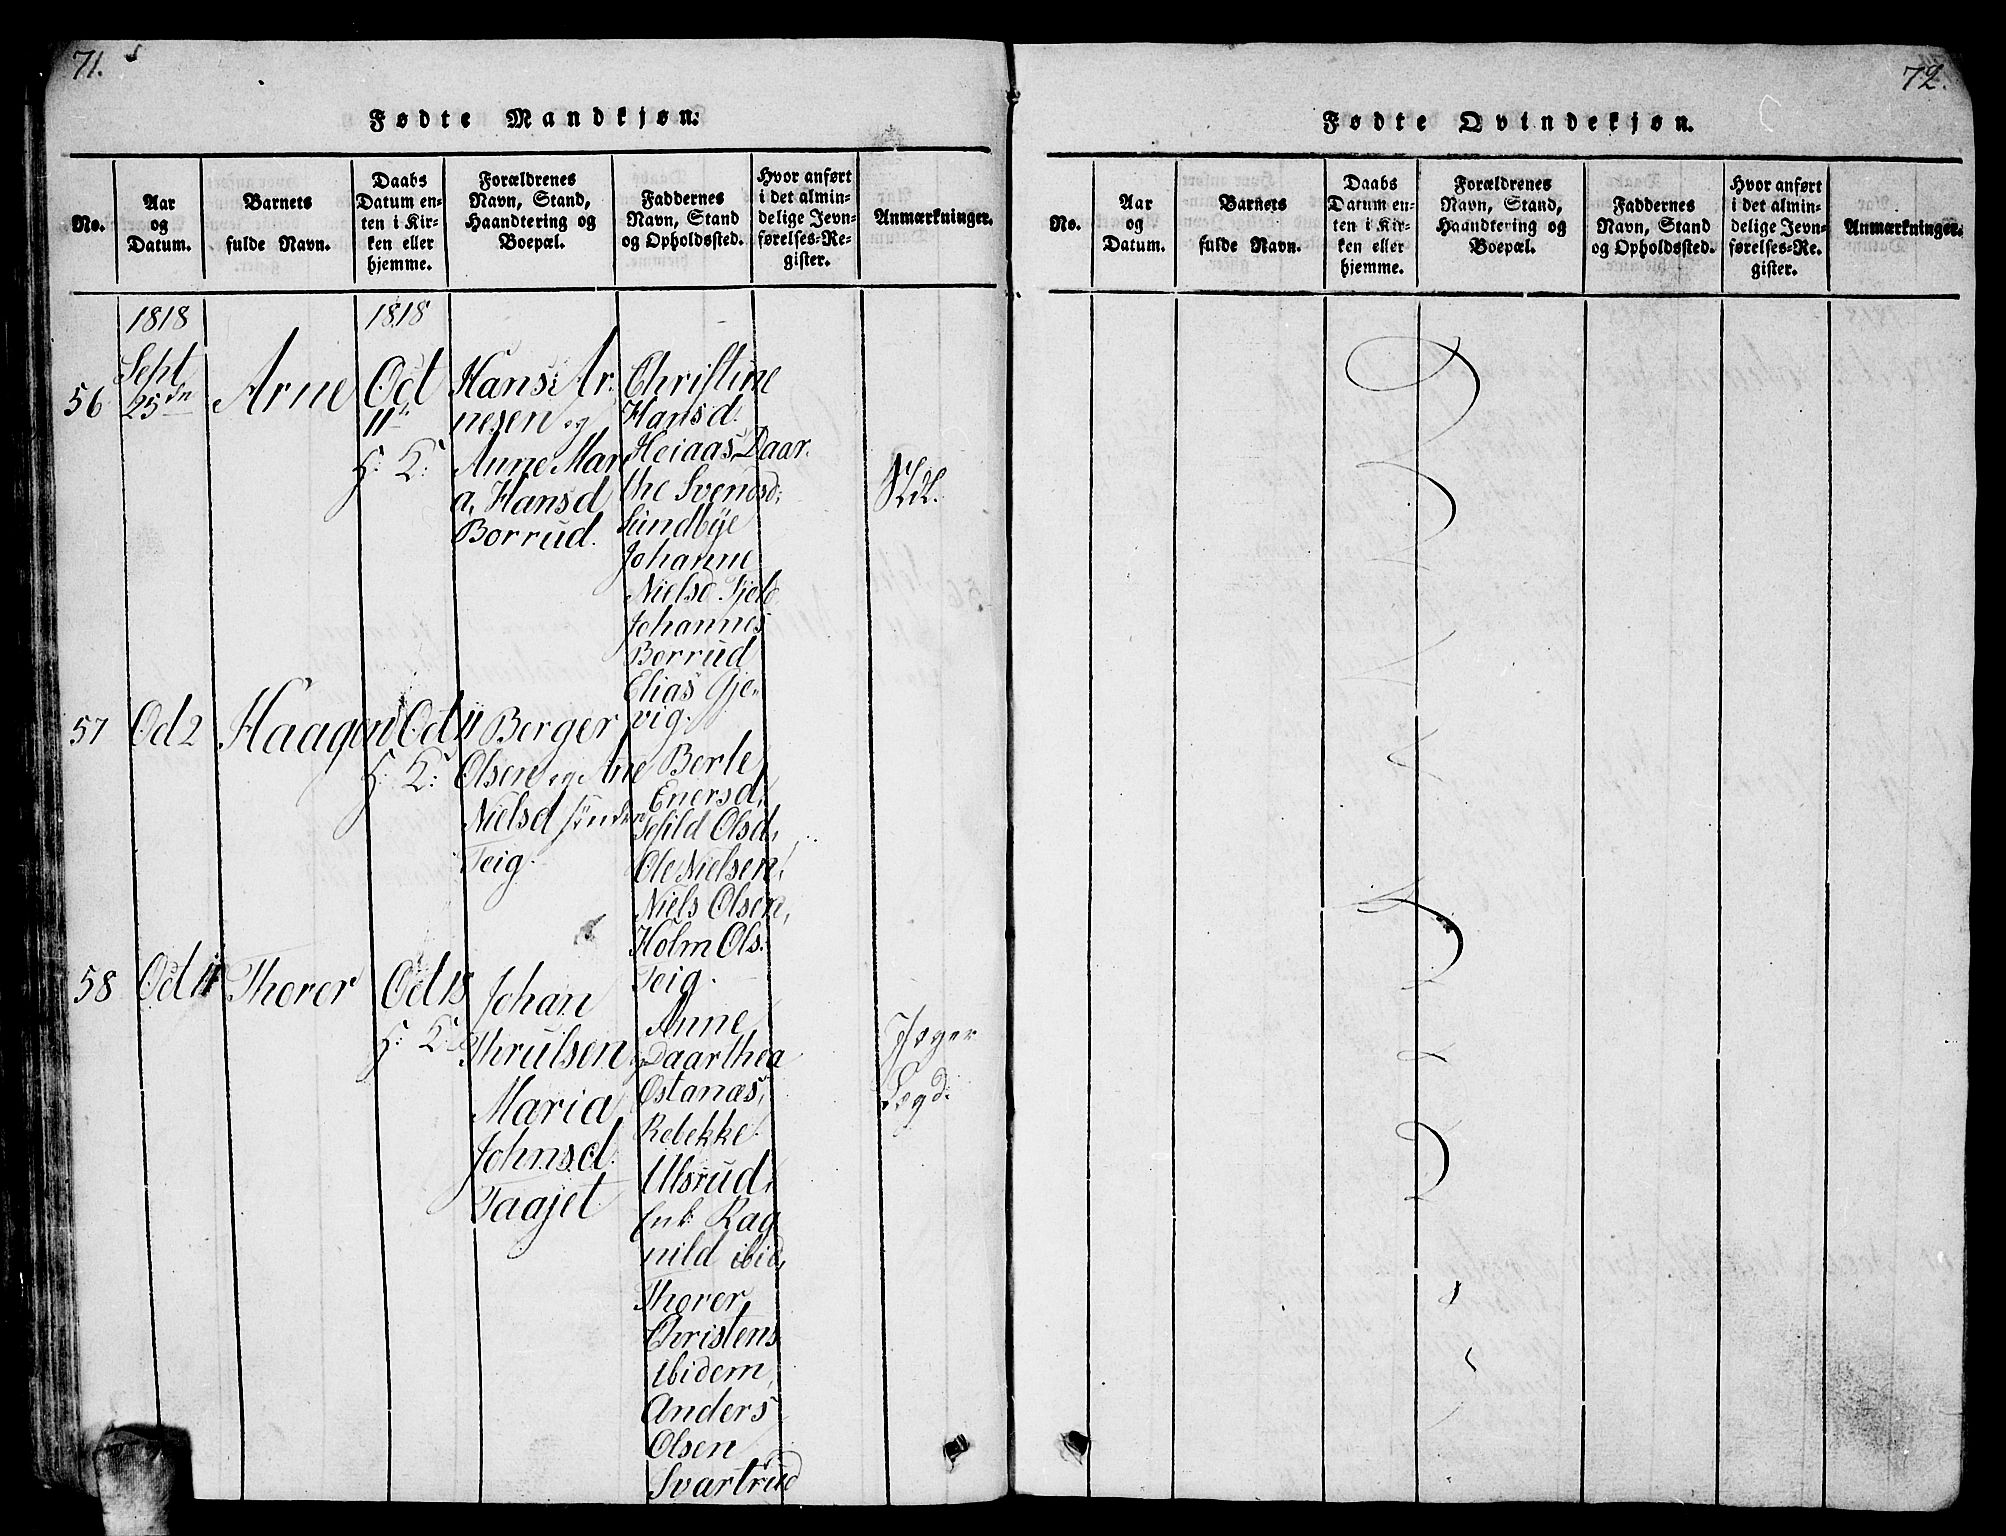 71.
Fødte Mandkjøn.
No.
Aar
og
Datum.
Barnets
fulde Navn.
Daabs
Datum en-
ten i Kir-
ken eller
hjemme.
Forældrenes
Navn, Stand,
Haandtering og
Boepæl.
Faddernes
Navn, Stand
og Opholdssted.
Hvor anført
i det almin-
delige Jevn-
førelses-Re-
gister.
Anmærkninger.
56
1818
Sept
25de
Arne
1818
Oct
11te
H: K:
Hans Ar-
nesen og
Anne Mari
a, Hansd
Borrud.
Christine
Hansd.
Heiaas, Daar-
the Svendsd,
Sundbye
Johanne
Nielsd
Johannes
Borrud
Elias Gje-
vig.
57
Oct 2
Haagen
Oct 11
H: K:
Berger
Olsen og Ane
Nielsd Sønder
Teig.
Berte
Enersd,
Olsd,
Ole Nielsen,
Niels Olsen,
Holm Ols.
Teig.
58
Oct 11
Thorer
Oct 18
H: K:
Johan
Thrulsen og
Maria
Johnsd.
Taajet
Anne
Daarthea
Ostanæs,
Rebekke
Ulsrud,
Enk: Rag
nild ibid,
Thorer
Christens
ibidem,
Anders
Olsen
Svartrud
Jæger
Lægd.
72.
Fødte Qvindekjøn.
No.
Aar
og
Datum.
Barnets
fulde Navn.
Daabs
Datum en-
ten i Kir-
ken eller
hjemme.
Forældrenes
Navn, Stand,
Haandtering og
Boepæl.
Faddernes
Navn, Stand
og Opholdssted.
Hvor anført
i det almin-
delige Jevn-
førelses-Re-
gister.
Anmærkninger.